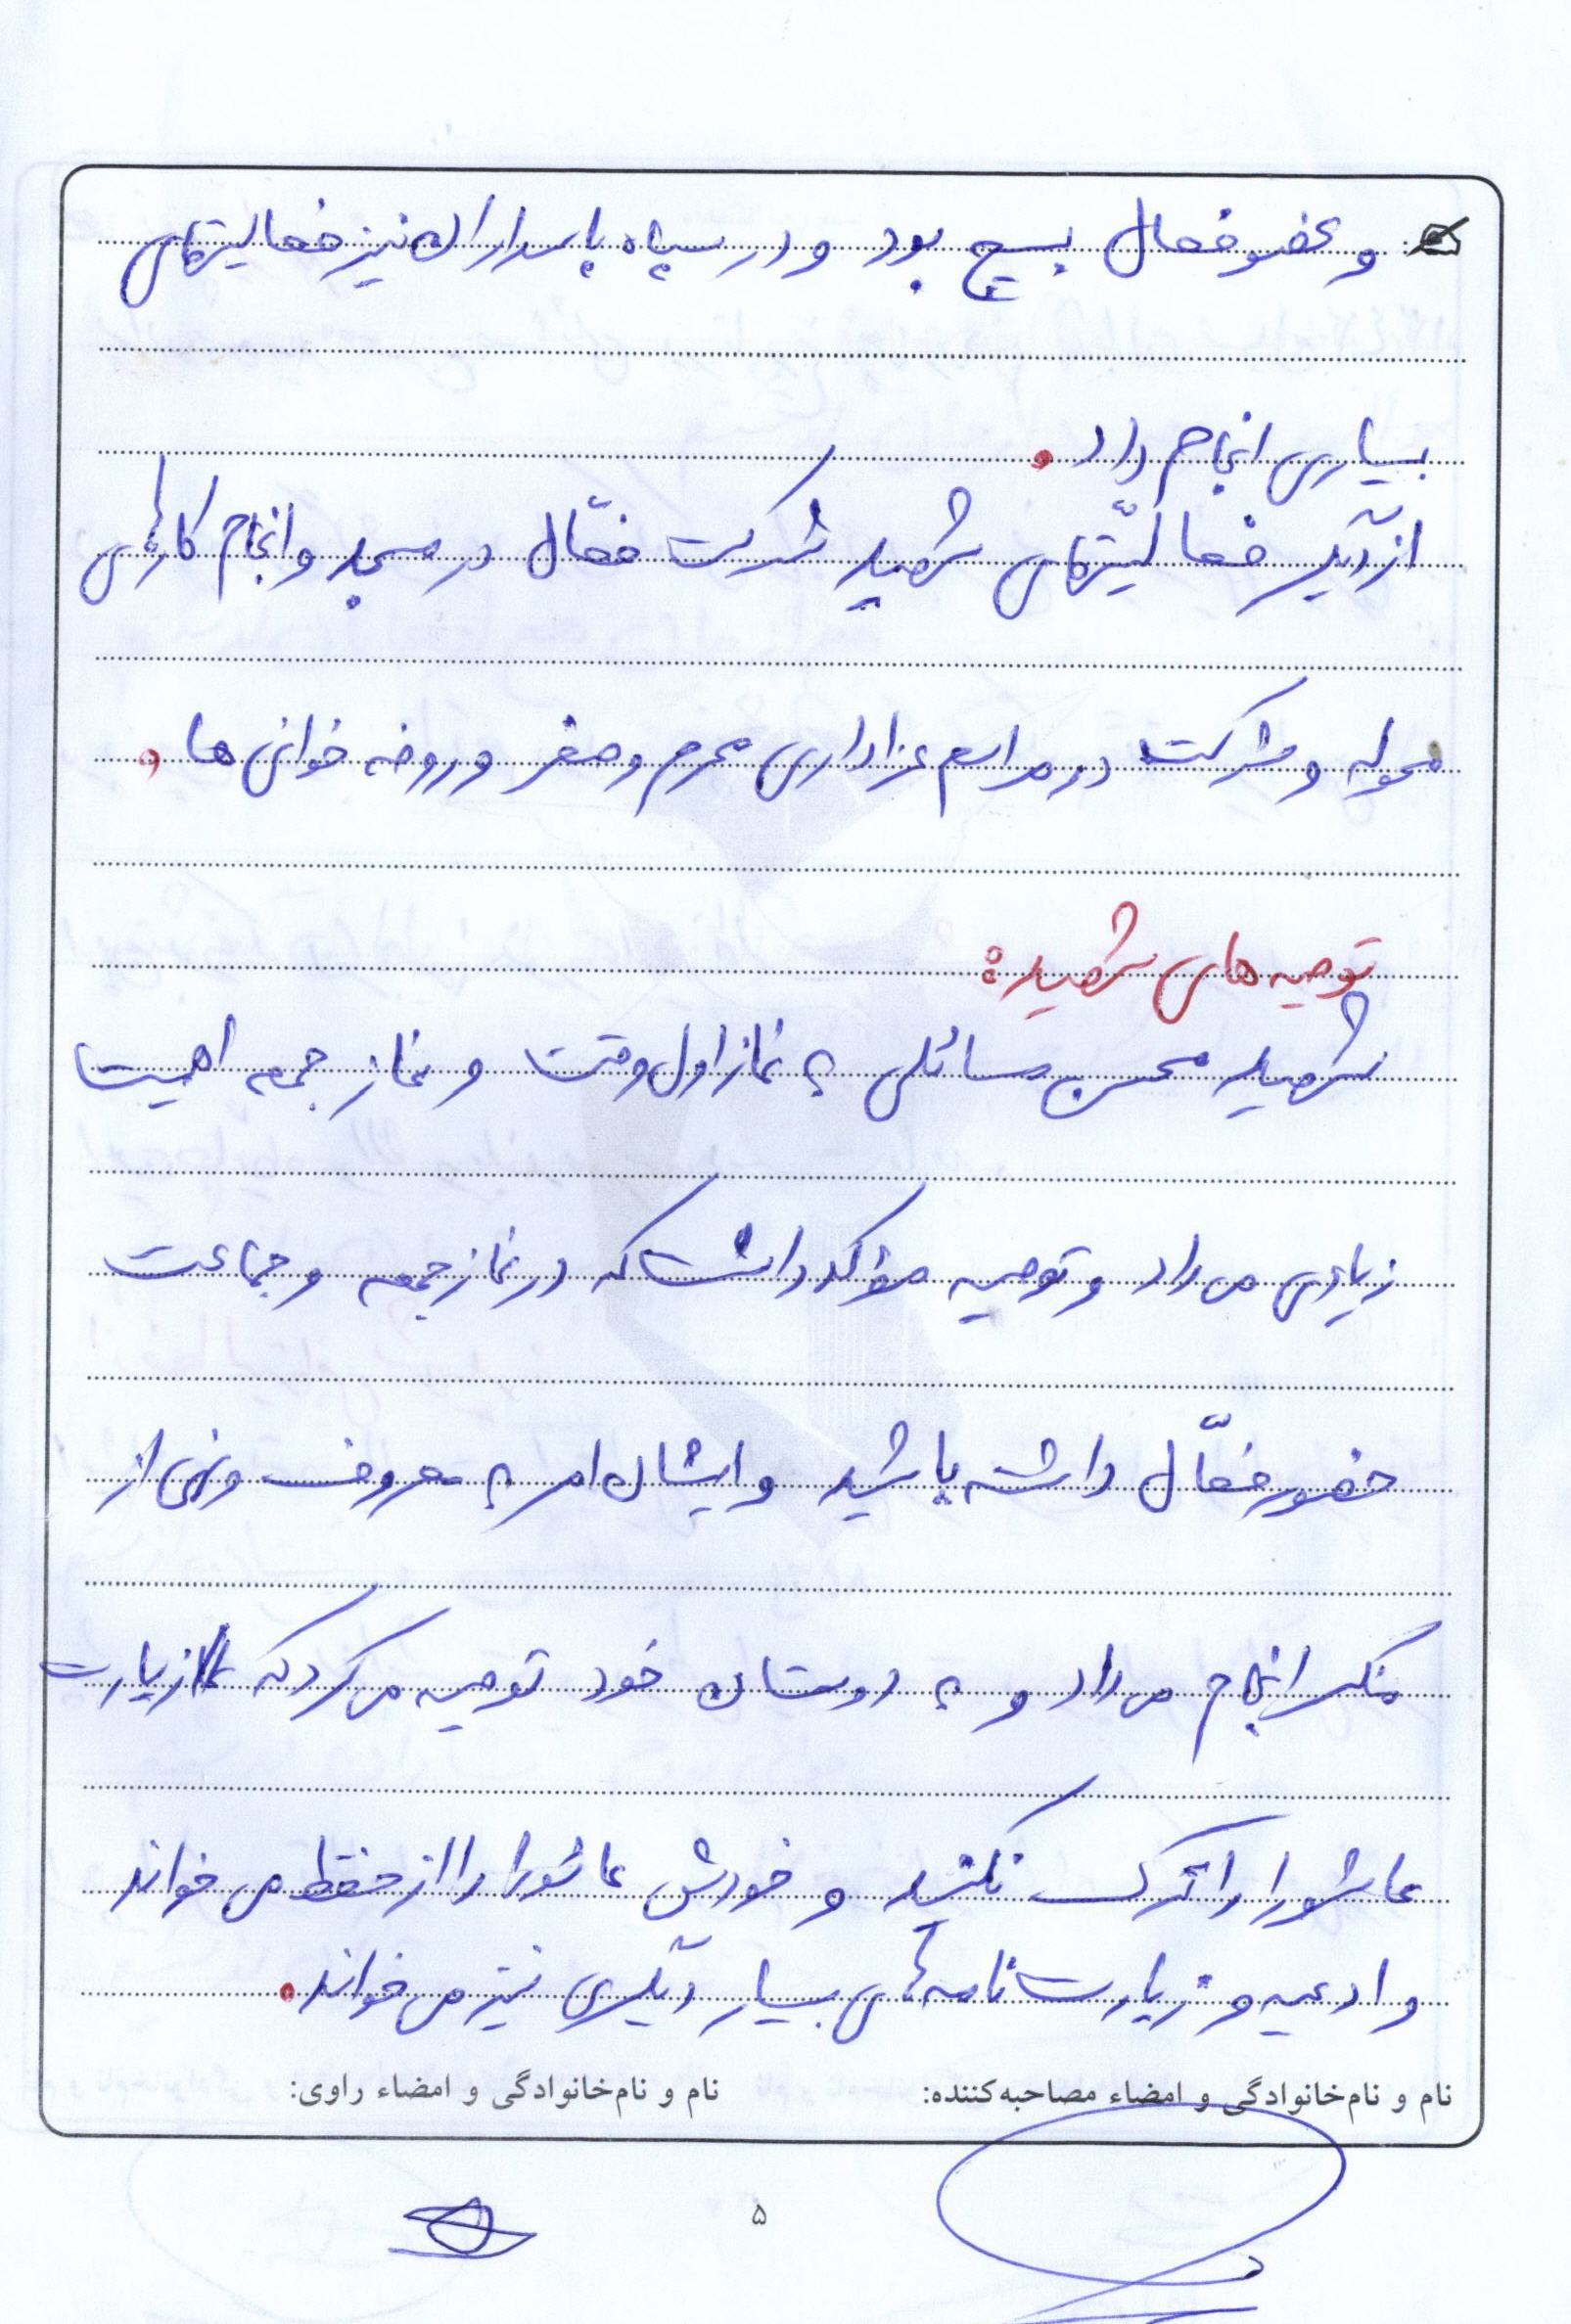 و عضو فعال بسیج بود و در سپاه پاسداران نیز فعالیتهای
بسیاری انجام داد.
از دیگر فعالیّتهای شهید شرکت فعّال در مسجد و انجام کارهای
محوله و شرکت در مراسم عزاداری محرم و صفر و روضه خوانی ها.
توصیه های شهید:
شهید محسن مسائلی به نماز اول وقت و نماز جمعه اهمیت
زیادی می داد و توصیه مؤکد داشت که در نماز جمعه و جماعت
حضور فعّال داشته باشید و ایشان امر به معروف و نهی از
منکر انجام می داد و به دوستان خود توصیه می کرد که زیارت
عاشورا را ترک نکنید و خودش عاشورا را از حفظ می خواند
و ادعیه و زیارت نامه های بسیار دیگری نیز می خواند.
نام و نام‌خانوادگی و امضاء مصاحبه‌کننده: نام و نام‌خانوادگی و امضاء راوی:
۵